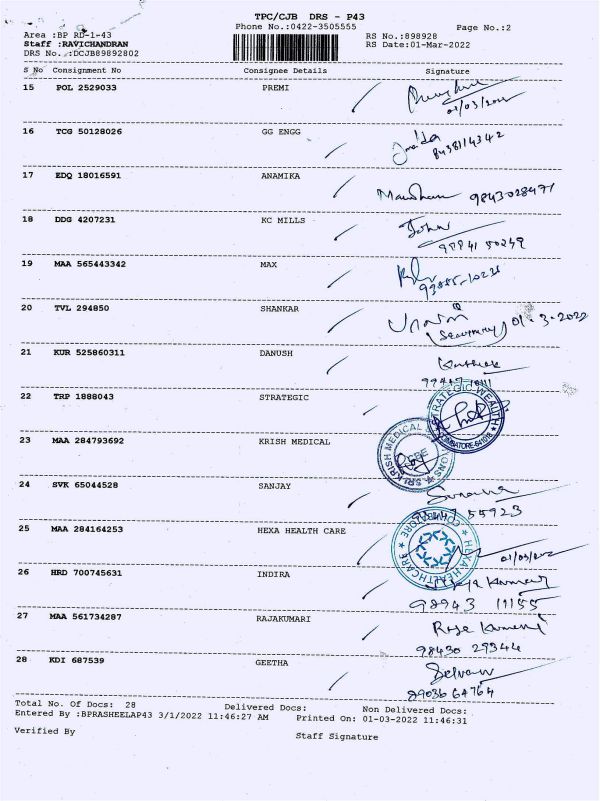 TPC/CJB DRS - P43
Phone No.:0422-3505555
Page No.:2
Area :BP RD-1-43
RS No.:898928
Staff :RAVICHANDRAN
RS Date:01-Mar-2022
DRS No. :DCJB89892802
S No Consignment No Consignee Details Signature
15 POL 2529033 PREMI
01/03/2022
16 TCG 50128026 GG ENGG
8438114342
17 EDQ 18016591 ANAMIKA
9843028471
18 DDG 4207231 KC MILLS
John
19 MAA 565443342 MAX
20 TVL 294850 SHANKAR
01-3-2022
21 KUR 525860311 DANUSH
22 TRP 1888043 STRATEGIC
STRATEGIC WEALTH
COIMBATORE-641018
23 MAA 284793692 KRISH MEDICAL
KRISH MEDICAL
24 SVK 65044528 SANJAY
55923
25 MAA 284164253 HEXA HEALTH CARE
HEXA HEALTHCARE
COIMBATORE
01/03/2022
26 HRD 700745631 INDIRA
98943 11155
27 MAA 561734287 RAJAKUMARI
98430 29344
28 KDI 687539 GEETHA
Selvam
89036 64764
Total No. Of Docs: 28 Delivered Docs: Non Delivered Docs:
Entered By :BPRASHEELAP43 3/1/2022 11:46:27 AM Printed On: 01-03-2022 11:46:31
Verified By
Staff Signature